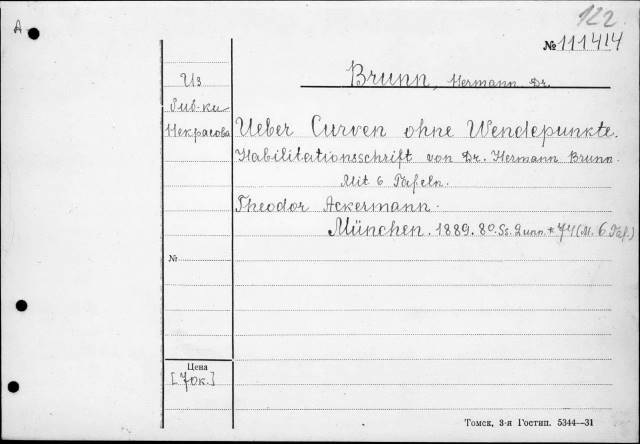 122
А
№ 111414
Brunn, Hermann Dr.
Из
биб-ки
Некрасова
Ueber Curven ohne Wendepunkte.
Habilitationsschrift von Dr. Hermann Brunn.
Mit 6 Tafeln.
Theodor Ackermann.
München. 1889. 8º. Ss. 2 unn. + 74 (M. 6 Taf.)
№
Цена
[70к.]
Томск, 3-я Гостип. 5344—31